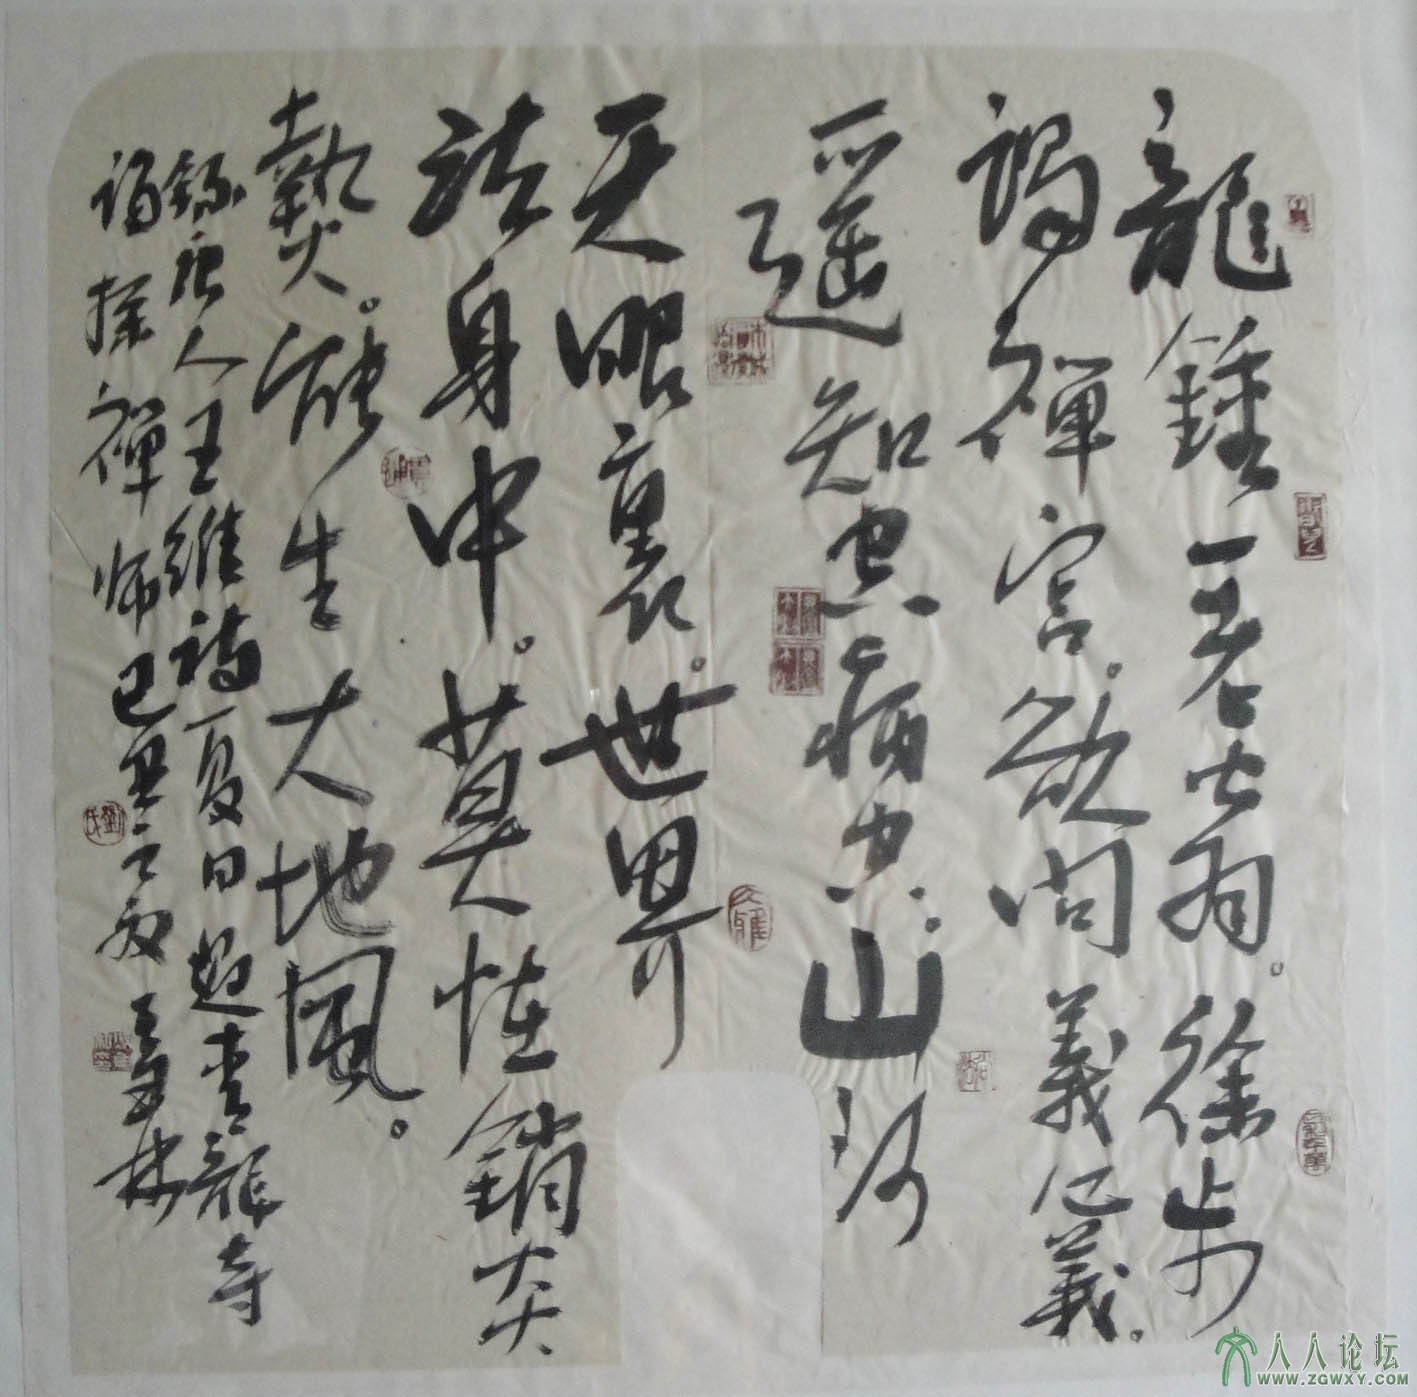 龍鍾一老翁。徐步
謁禪宮。欲問義心義。
遥知空病空。山河
天眼裏。世界
法身中。莫怪銷炎
熱。能生大地風。
錄唐人王維詩一首夏日過青龍寺
謁操禪師己丑之夏
人人论坛
WWW.ZGWXY.COM